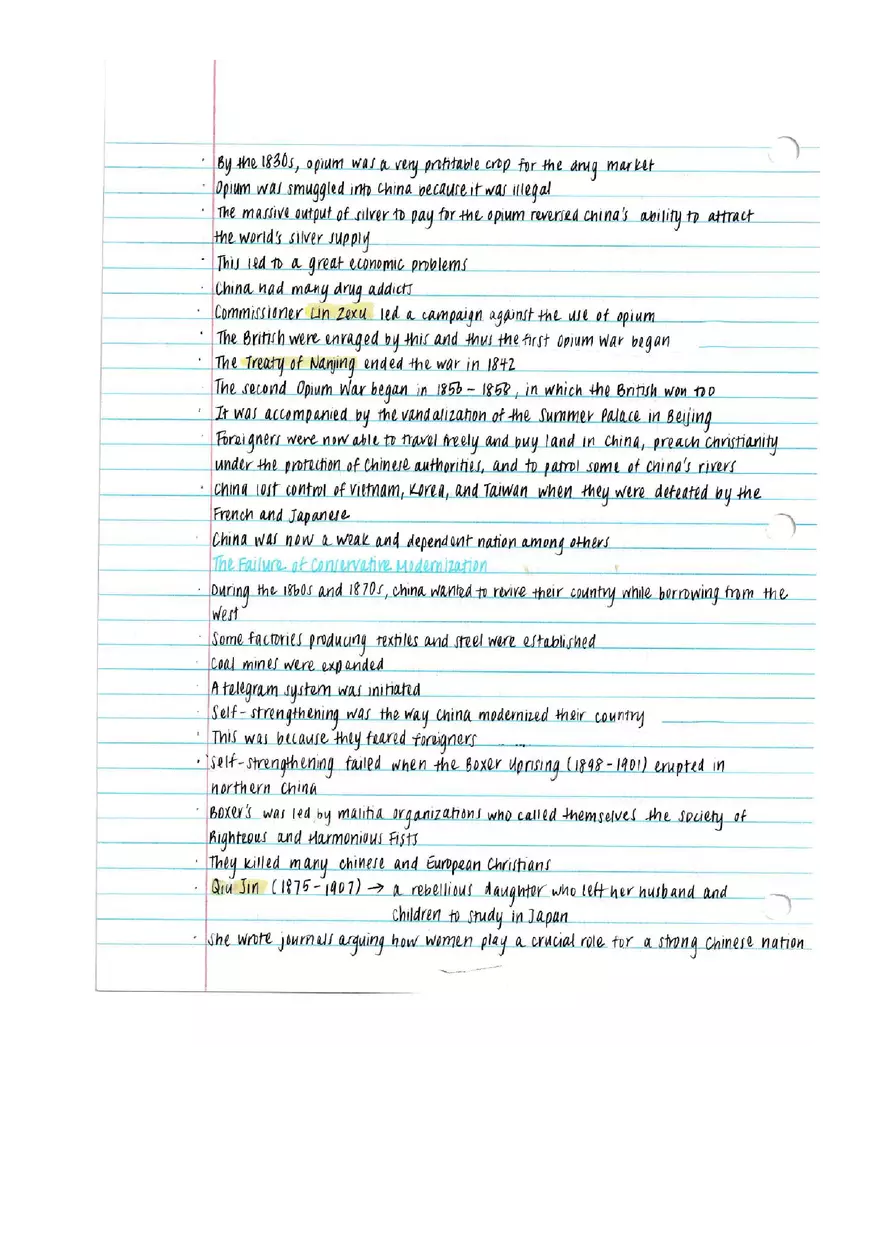 · By the 1830s, opium was a very profitable crop for the drug market
· Opium was smuggled into China because it was illegal
· The massive output of silver to pay for the opium reversed China's ability to attract
the world's silver supply
· This led to a great economic problems
· China had many drug addicts
· Commissioner Lin Zexu led a campaign against the use of opium
· The British were enraged by this and thus the first Opium War began
· The Treaty of Nanjing ended the war in 1842
· The second Opium War began in 1856 - 1858, in which the British won too
· It was accompanied by the vandalization of the Summer Palace in Beijing
· Foreigners were now able to travel freely and buy land in China, preach Christianity
under the protection of Chinese authorities, and to patrol some of China's rivers
· China lost control of Vietnam, Korea, and Taiwan when they were defeated by the
French and Japanese
· China was now a weak and dependent nation among others
The Failure of Conservative Modernization
· During the 1860s and 1870s, china wanted to revive their country while borrowing from the
West
· Some factories producing textiles and steel were established
· Coal mines were expanded
· A telegram system was initiated
· Self-strengthening was the way China modernized their country
· This was because they feared foreigners
· Self-strengthening failed when the Boxer Uprising (1898-1901) erupted in
northern China
· Boxer's was led by malitia organizations who called themselves the Society of
Righteous and Harmonious Fists
· They killed many chinese and European Christians
· Qiu Jin (1875-1907) → a rebellious daughter who left her husband and
children to study in Japan
· She wrote journals arguing how women play a crucial role for a strong Chinese nation